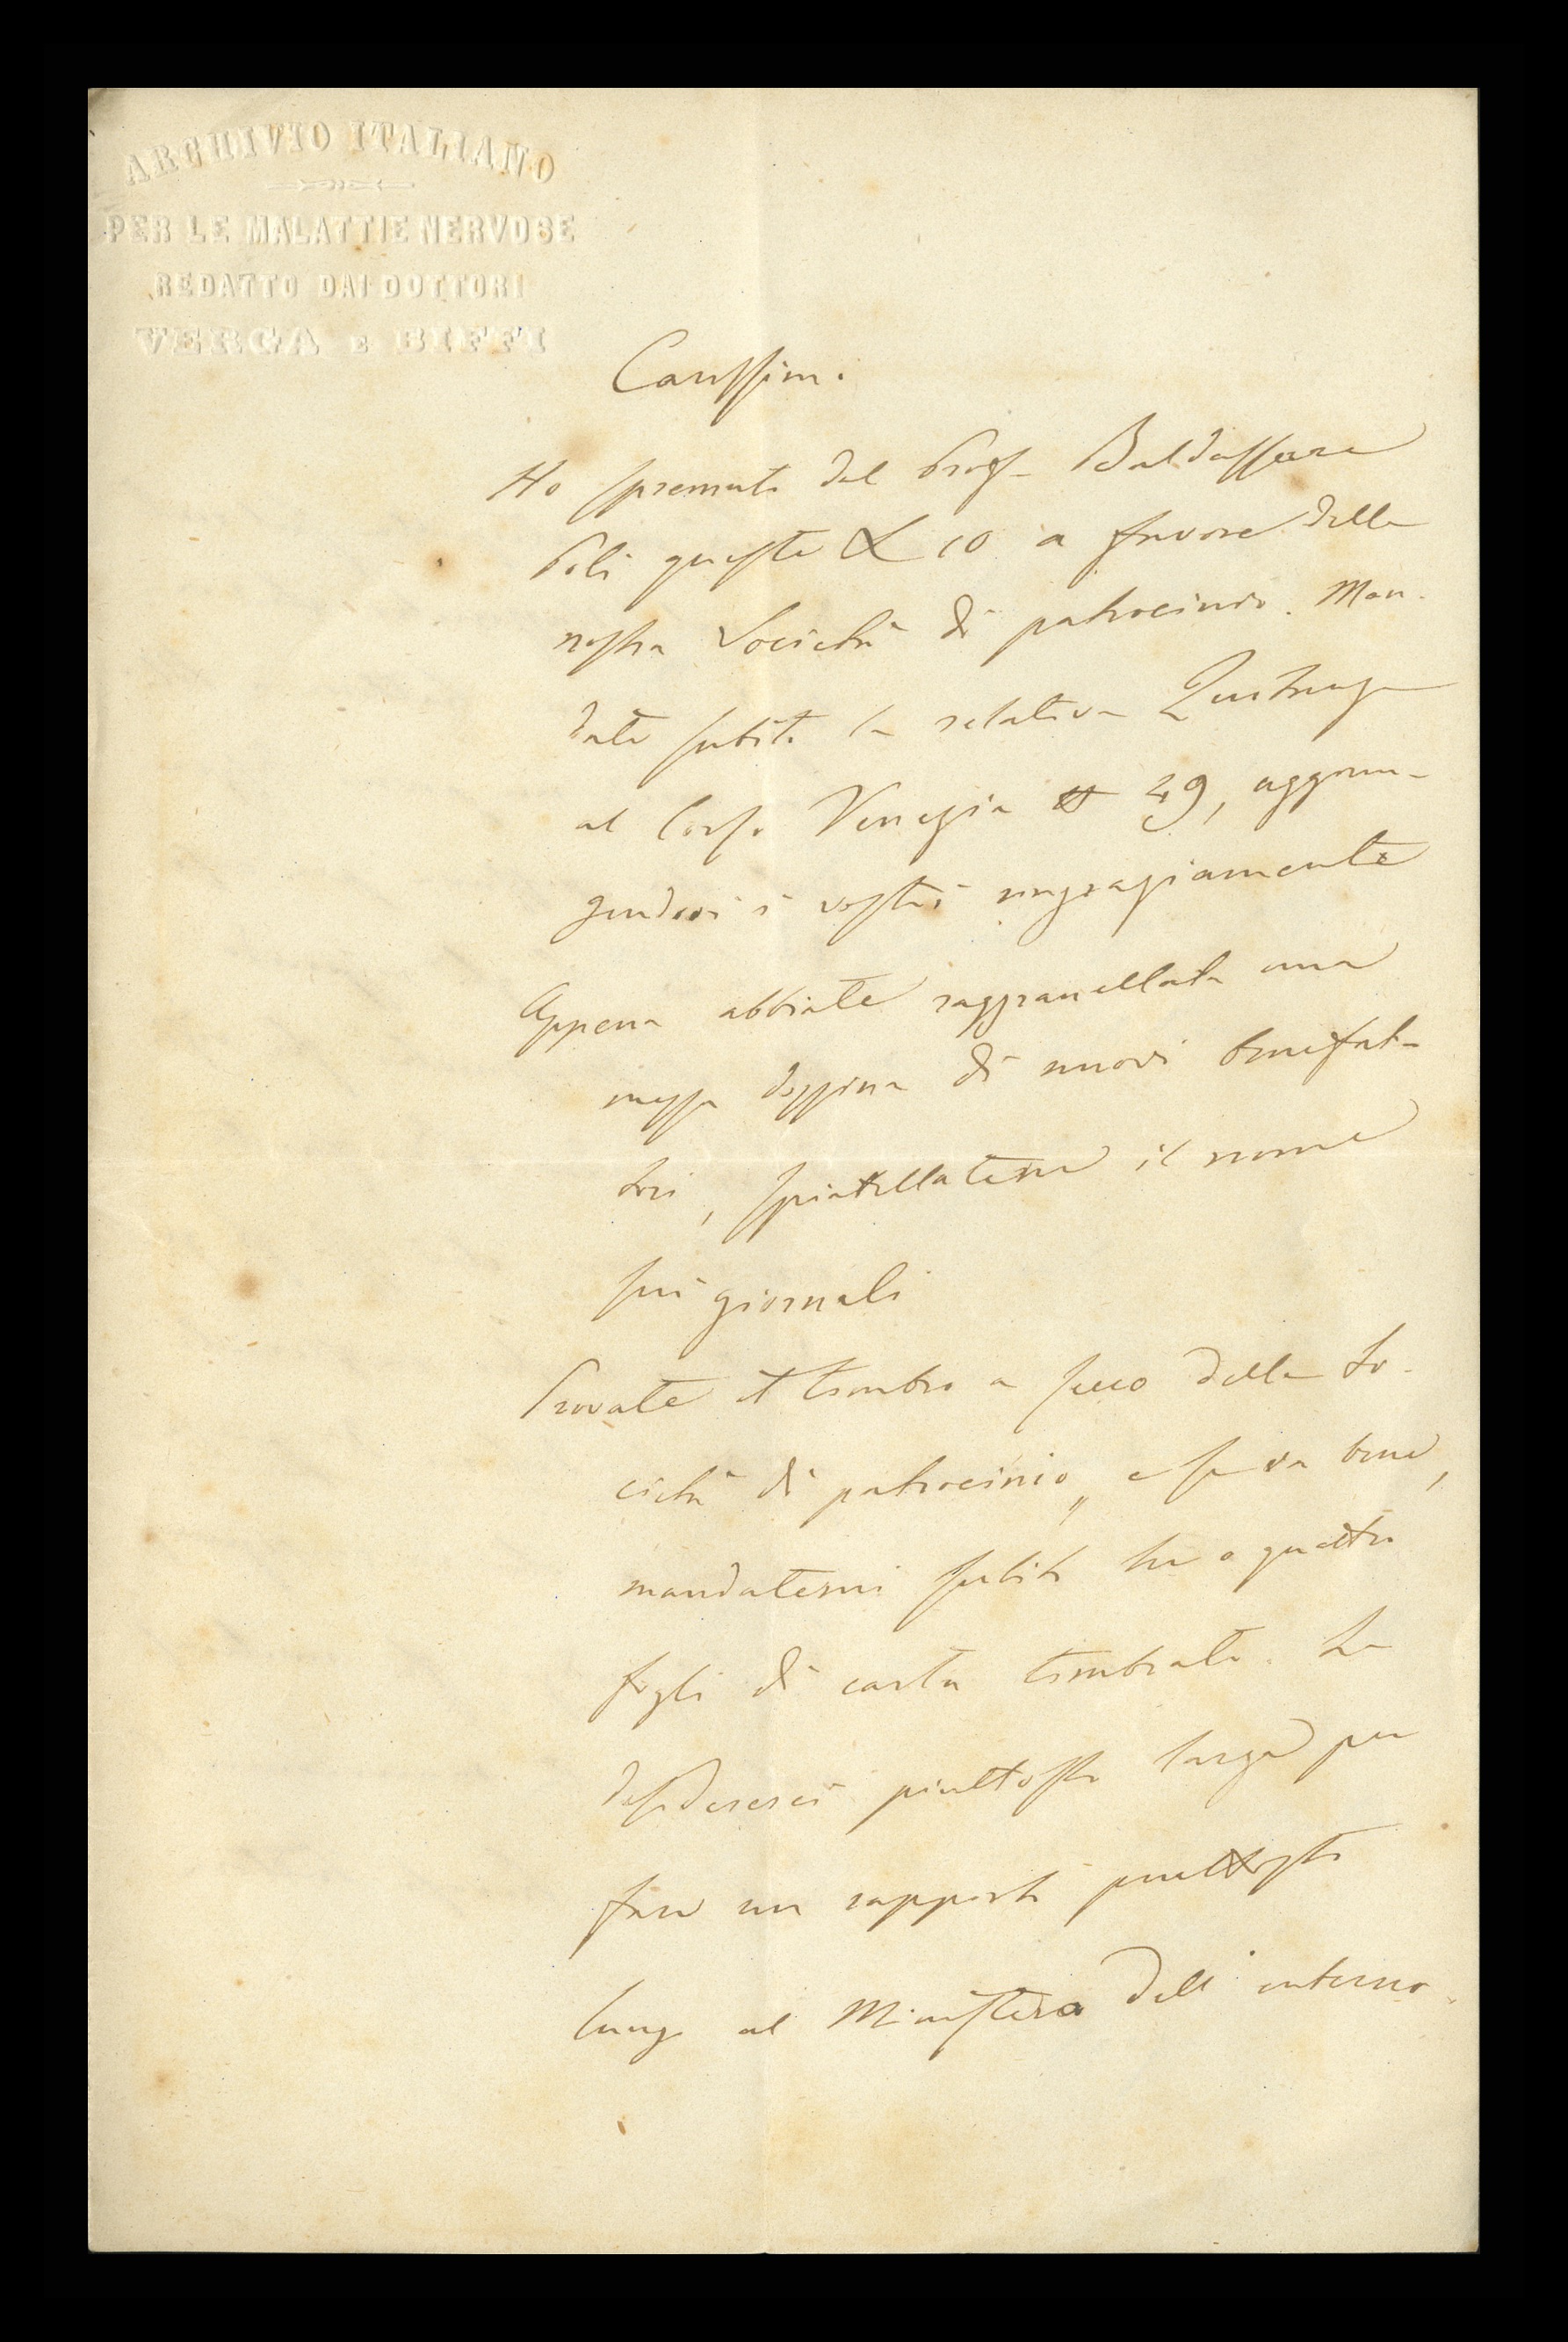 ARCHIVIO ITALIANO
PER LE MALATTIE NERVOSE
REDATTO DAI DOTTORI
VERGA E BIFFI
Carissimo.
Ho spremuto dal Prof. Baldassare
Poli queste £ 10 a favore della
nostra Società di patrocinio. Man-
date subito la relativa Quitanza
al Corso Venezia 49, aggiun-
gendovi i vostri ringraziamenti
Appena abbiate raggranellata una
mezza dozzina di nuovi benefat-
tori, spiattellatene il nome
sui giornali
Provate il timbro a secco della So-
cietà di patrocinio, e se va bene,
mandatemi subito tre o quattro
fogli di carta timbrata. La
desidererei piuttosto larga per
fare un rapporto piuttosto
lungo al Ministero dell'interno.